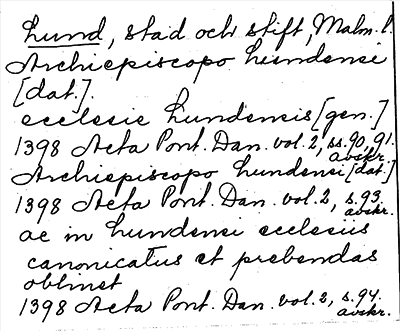 Lund, stad och stift, Malm. l.
Archiepiscopo Lundensi
[dat.].
ecclesie Lundensis [gen.]
1398 Acta Pont. Dan. vol. 2, ss. 90, 91.
avskr.
Archiepiscopo Lundensi [dat.]
1398 Acta Pont. Dan. vol. 2, s. 93.
avskr.
ac in Lundensi ecclesiis
canonicatus et prebendas
obtinet
1398 Acta Pont. Dan. vol. 2, s. 94.
avskr.